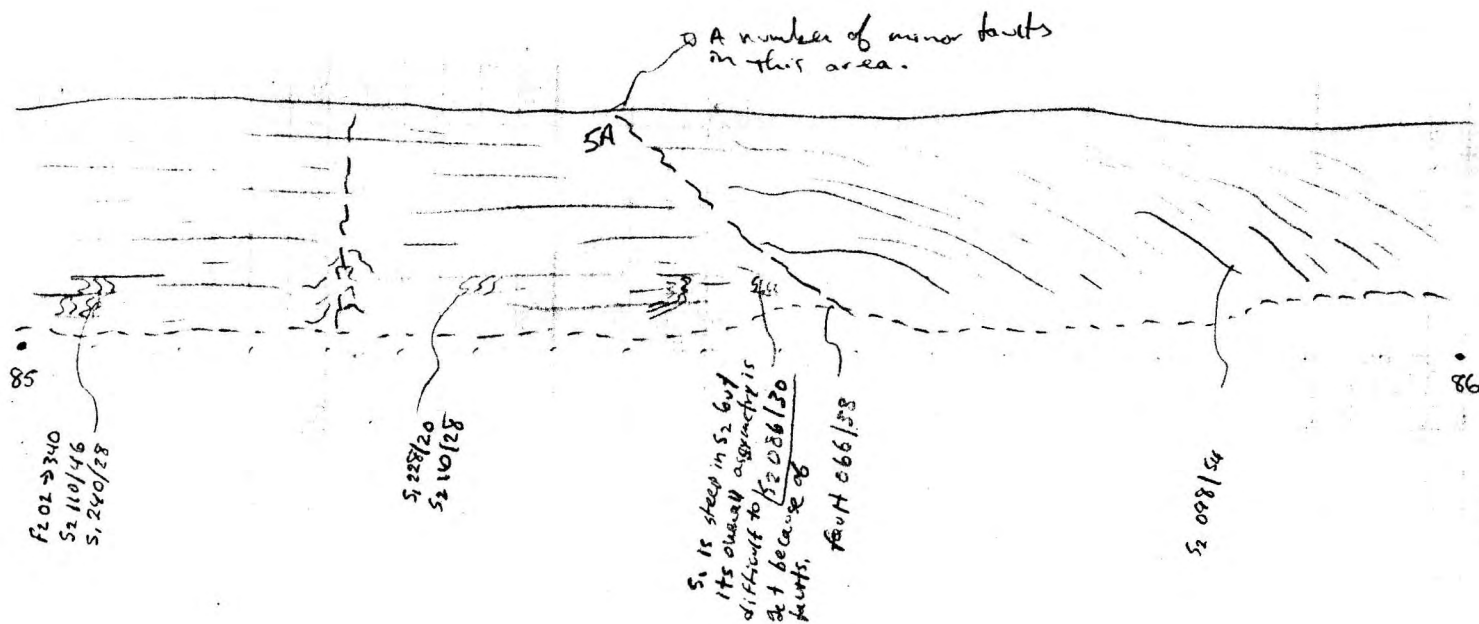 A number of minor faults
in this area.
5A
85
86
F2 02→340
S2 110/46
S1 240/28
S1 228/20
S2 110/28
S1 is steep in S2 but
its overall assymetry is
difficult to
get because of
faults.
S2 086/30
fault 066/58
S2 098/54